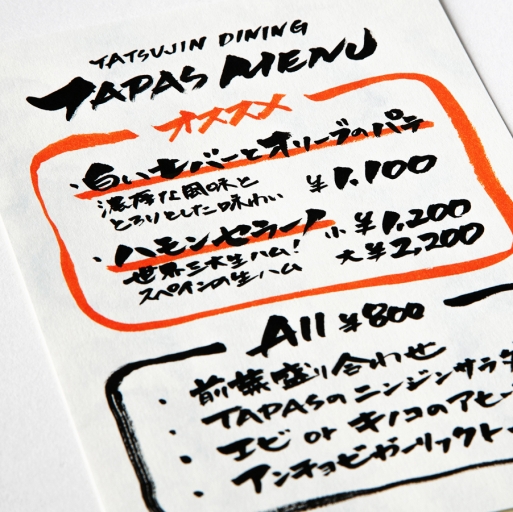 TATSUJIN DINING
TAPAS MENU
オススメ
・白いレバーとオリーブのパテ
濃厚な風味と
とろりとした味わい
¥1,100
・ハモンセラーノ
世界三大生ハム!
スペインの生ハム
小¥1,200
大¥2,200
All ¥800
・前菜盛り合わせ
・TAPASのニンジンサラダ
・エビ or キノコのアヒー
・アンチョビガーリックトー